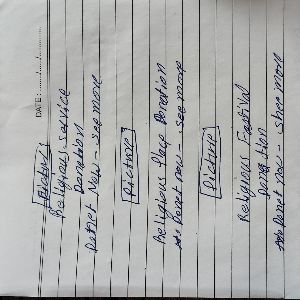 DATE:
Picture
Religious-service
Donation
Donet Now - see more
Picture
Religious Place Donation
Donet now - see more
Picture
Religious Festival
Donation
Donet now - shee more